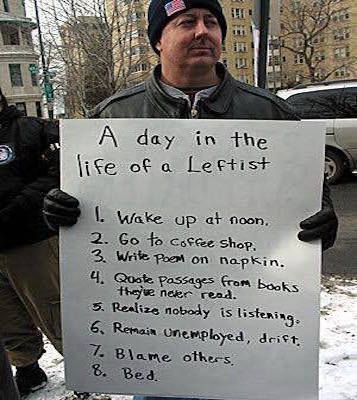 A day in the
life of a Leftist
1. Wake up at noon.
2. Go to coffee shop.
3. Write Poem on napkin.
4. Quote passages from books
they've never read.
5. Realize nobody is listening.
6. Remain unemployed, drift.
7. Blame others.
8. Bed.